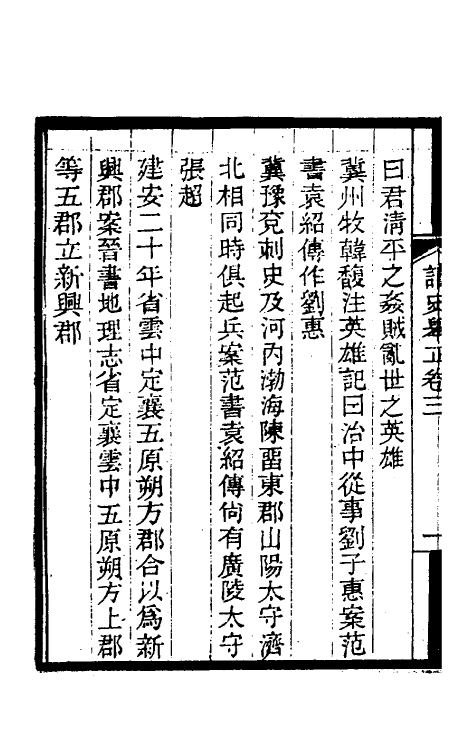 讀史舉正卷三
一
曰君清平之姦賊亂世之英雄
冀州牧韓馥注英雄記曰治中從事劉子惠案范
書袁紹傳作劉惠
冀豫兗刺史及河內渤海陳留東郡山陽太守濟
北相同時俱起兵案范書袁紹傳尙有廣陵太守
張超
建安二十年省雲中定襄五原朔方郡合以爲新
興郡案晉書地理志省定襄雲中五原朔方上郡
等五郡立新興郡